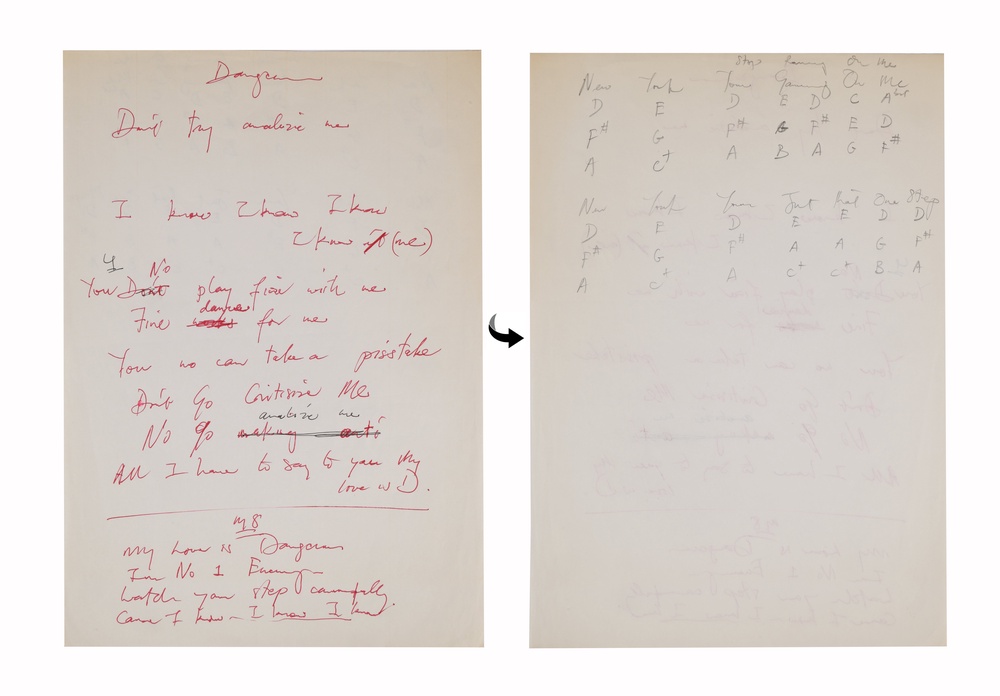 Dangerous
Don't try analize me
I know I know I know
I know it (me)
No
You Don't play fire with me
danger
Fire for me
You no can take a pisstake
Don't Go Critisise Me
analize me
No go making anti
All I have to say to you My
love is D.
M8
My Love is Dangerous
I'm No 1 Enemy
Watch your step carefully
Cause I know - I know I know
Stop Running On Me
New York Your Gaming On Me
D E D E D C A
F# G F# G F# E D
A C+ A B A G F#
New York Your Just that One Step
D E D E E D D
F# G F# A A G F#
A C+ A C+ C+ B A